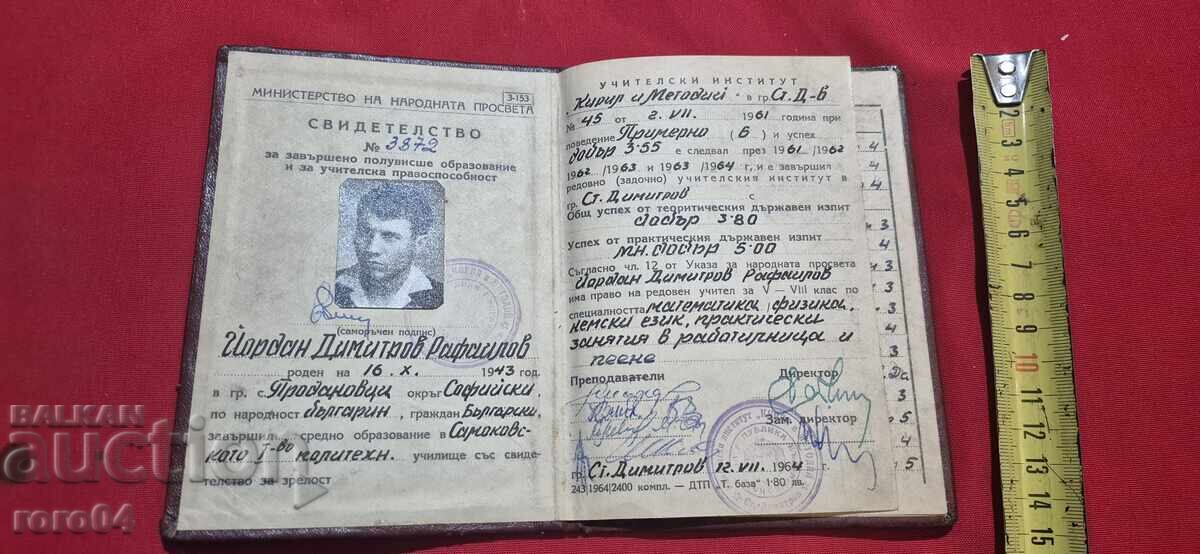 МИНИСТЕРСТВО НА НАРОДНАТА ПРОСВЕТА
З-153
СВИДЕТЕЛСТВО
№ 3872
за завършено полувисше образование
и за учителска правоспособност
(саморъчен подпис)
Йордан Димитров Рафаилов
роден на 16. X. 1943 год.
в гр. с. Продановци окръг Софийски
по народност българин, граждан Български,
завършил средно образование в Самоковс-
ското I-во политехн. училище със свиде-
телство за зрелост
УЧИТЕЛСКИ ИНСТИТУТ
"Кирил и Методий" в гр. Ст. Д-в
№ 45 от 2. VII. 1961 година при
поведение Примерно (6) и успех
добър 3.55 е следвал през 1961/1962
1962/1963 и 1963/1964 г. и е завършил
редовно (задочно) учителския институт в
гр. Ст. Димитров с
Общ успех от теоритическия държавен изпит
добър 3.80
Успех от практическия държавен изпит
мн. добър 5.00
Съгласно чл. 12 от Указа за народната просвета
Йордан Димитров Рафаилов
има право на редовен учител за V — VIII клас по
специалността математика, физика,
немски език, практически
занятия в работилница и
пеене
Преподаватели Директор
Зам. директор
гр. Ст. Димитров 12. VII. 1964 г.
243|1964|2400 компл. — ДТП „Т. база" 1·80 лв.
4
4
3
4
3
3
4
3
3
5
4
5
2 3 4 5 6 7 8 9 10 11 12 13 14 15
БАЛКАН
auction
roro04